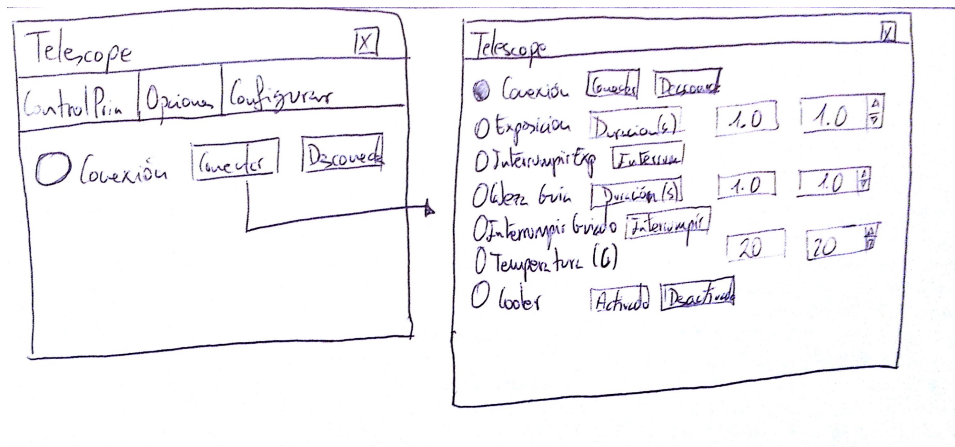 Telescope X
Control Prin Opciones Configurar
Conexión Conectar Desconecta
Telescope X
Conexión Conectar Desconect
Exposicion Duracion(s) 1.0 1.0
InterrumpirExp Interrum
Guia Duración(s) 1.0 1.0
Interrumpir Guiado Interrumpir
Temperatura (C) 20 20
Cooler Activado Deactivado